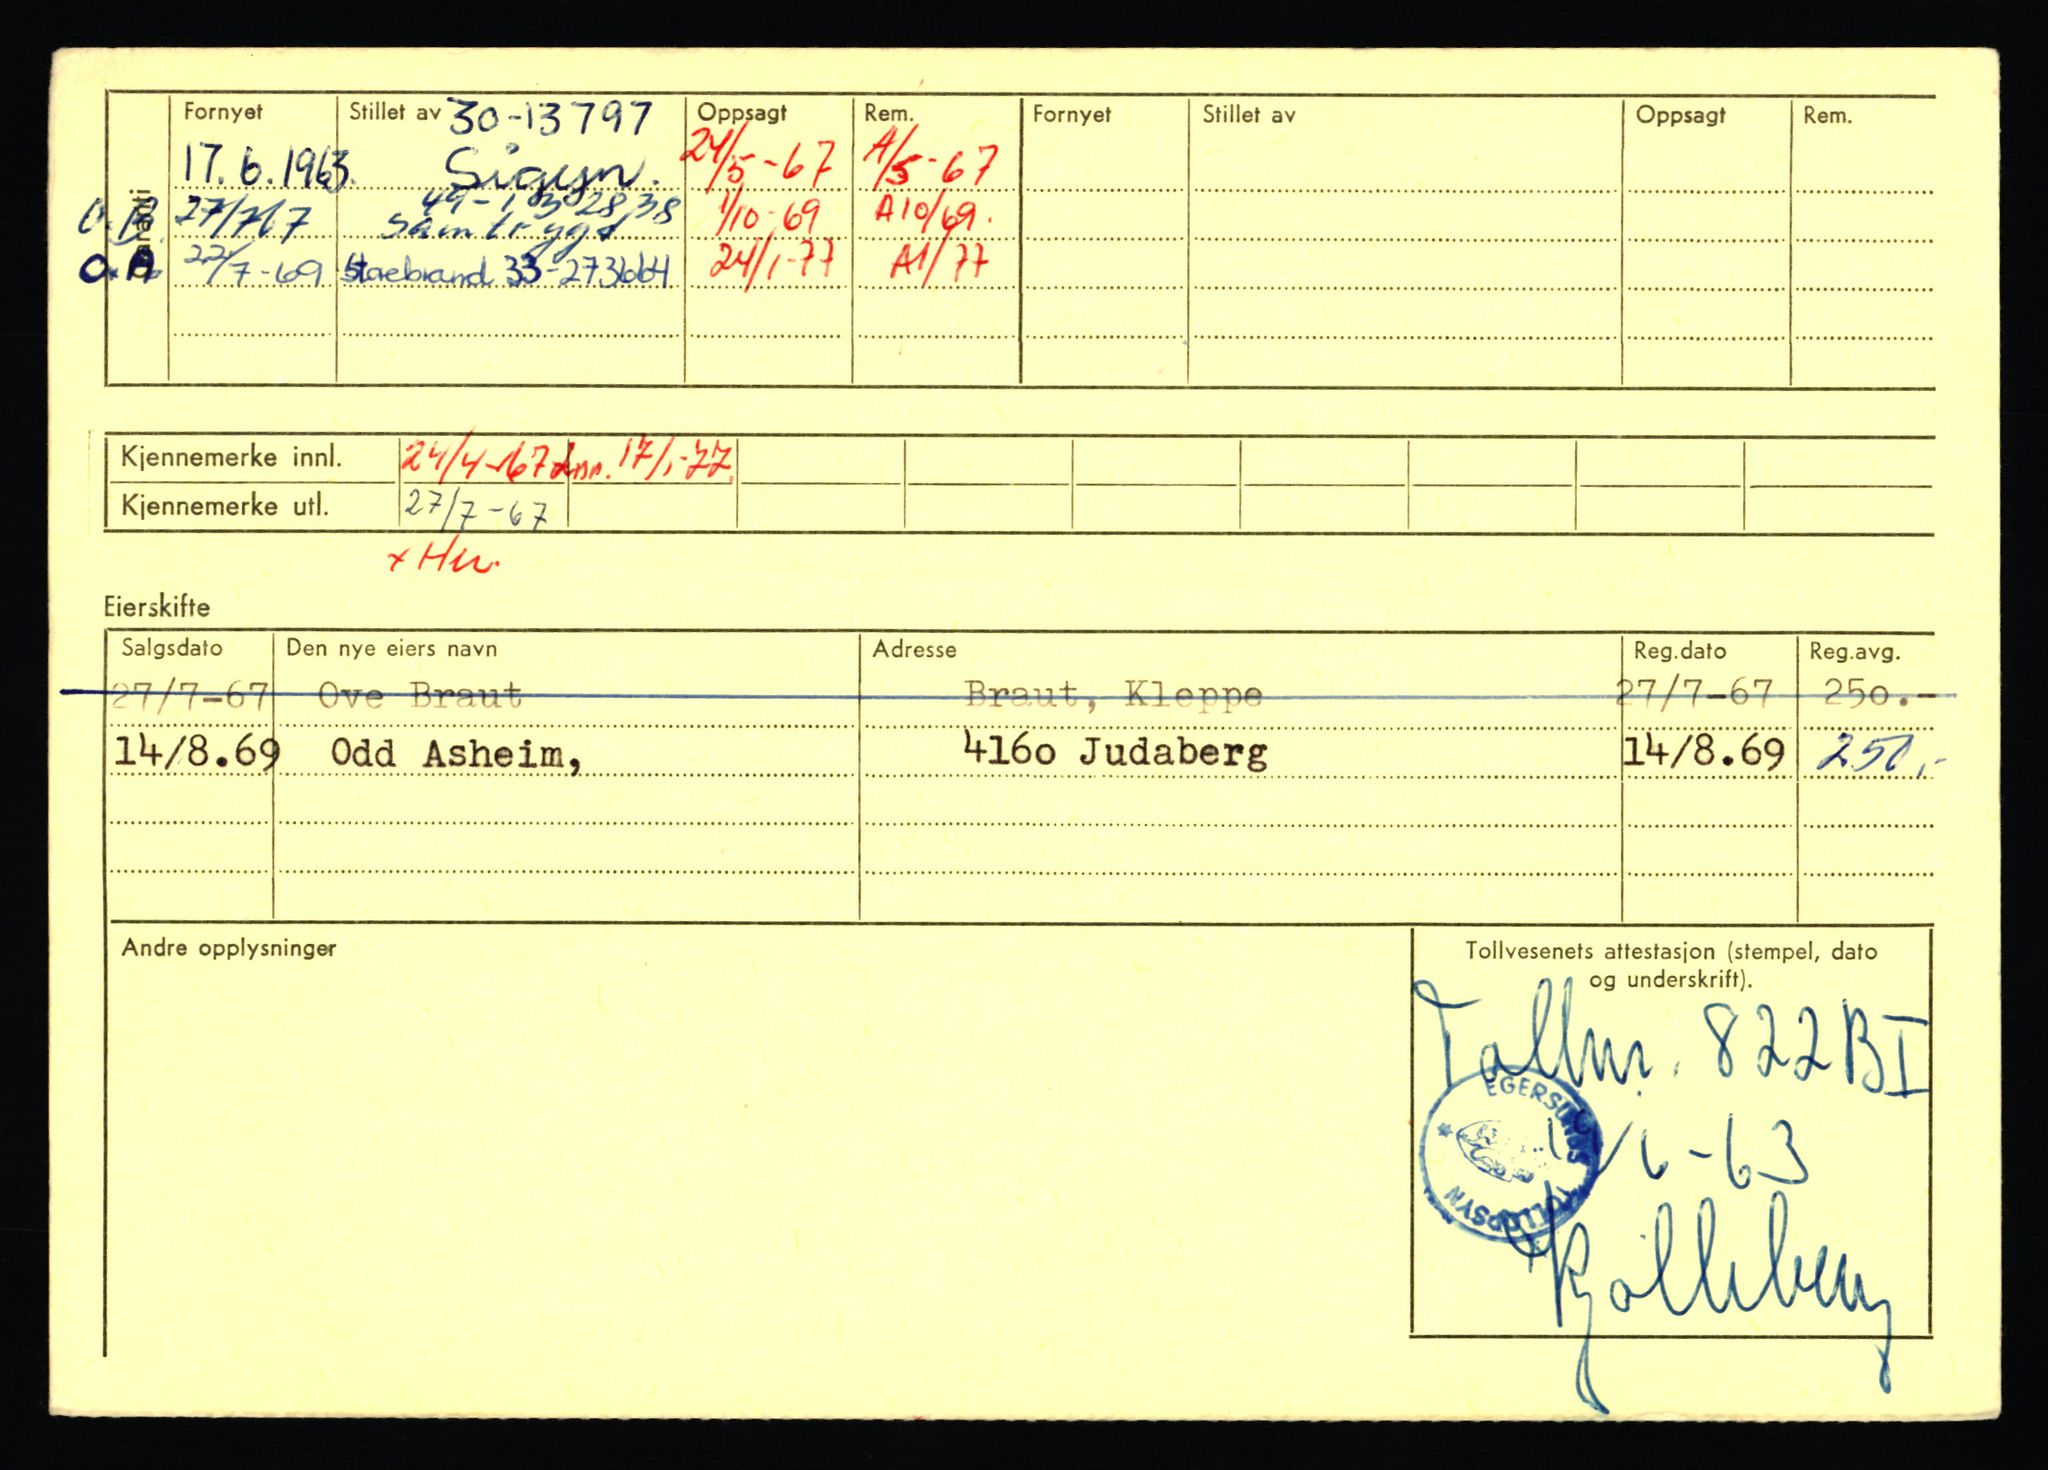 Garanti
Fornyet Stillet av Oppsagt Rem. Fornyet Stillet av Oppsagt Rem.
30-13797
17.6.1963. Sigyn. 24/5-67 A/5-67
49-1 3 28,38
O.B. 27/7 67 Samtrygd 1/10-69 A10/69.
O.A. 22/7-69 Storebrand 33-273664 24/1-77 A1/77
Kjennemerke innl. 24/4-67 17/1-77.
Kjennemerke utl. 27/7-67
Eierskifte
Salgsdato Den nye eiers navn Adresse Reg.dato Reg.avg.
27/7-67 Ove Braut Braut, Kleppe 27/7-67 250.-
14/8.69 Odd Asheim, 4160 Judaberg 14/8.69 250,-
Andre opplysninger
Tollvesenets attestasjon (stempel, dato
og underskrift).
Tollnr. 822 BI
EGERSUNDS TOLLOPPSYN
6-63